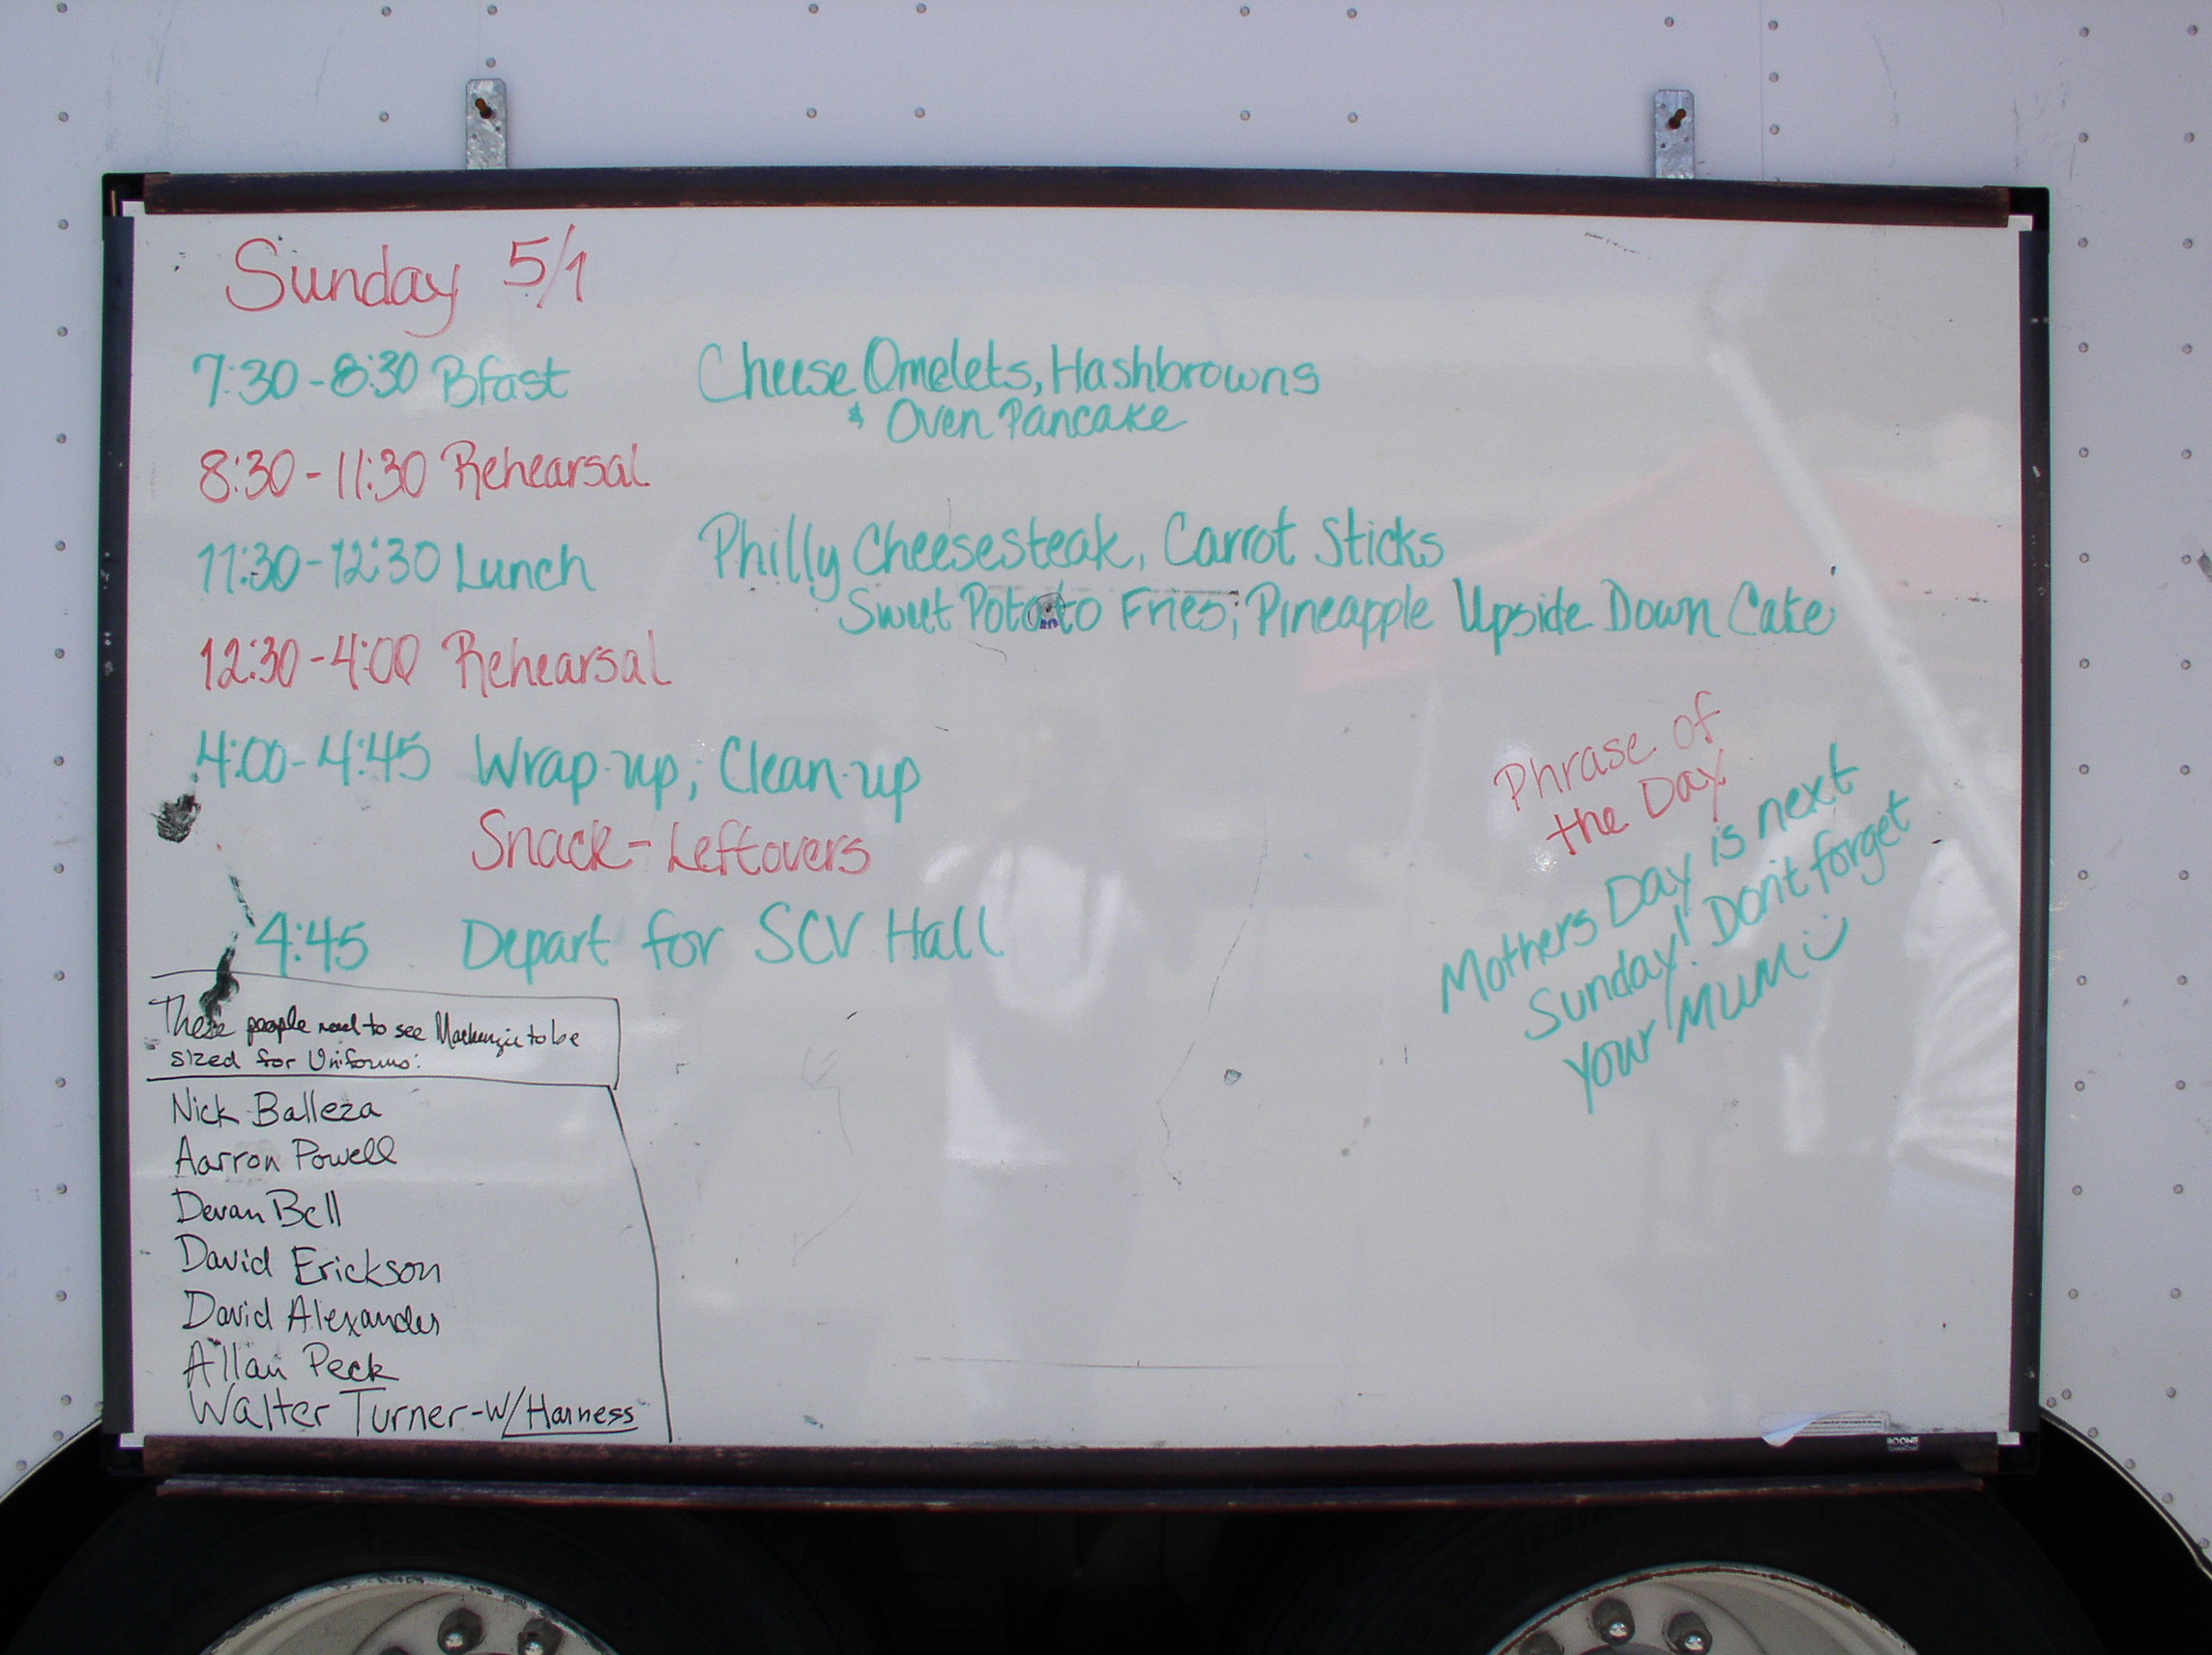 Sunday 5/1
7:30-8:30 Bfast Cheese Omelets, Hashbrowns
& Oven Pancake
8:30-11:30 Rehearsal
11:30-12:30 Lunch Philly Cheesesteak, Carrot Sticks
Sweet Potato Fries; Pineapple Upside Down Cake
12:30-4:00 Rehearsal
4:00-4:45 Wrap-up; Clean-up
Snack-Leftovers
4:45 Depart for SCV Hall
Phrase of
the Day
Mothers Day is next
Sunday! Don't forget
your MUM
These people need to see Mackenzie to be
sized for Uniforms:
Nick Balleza
Aarron Powell
Devan Bell
David Erickson
David Alexander
Allan Peck
Walter Turner-w/Harness
BOONE